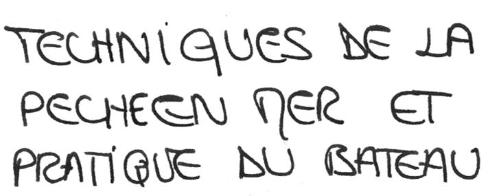 TECHNIQUES DE LA
PECHE EN MER ET
PRATIQUE DU BATEAU